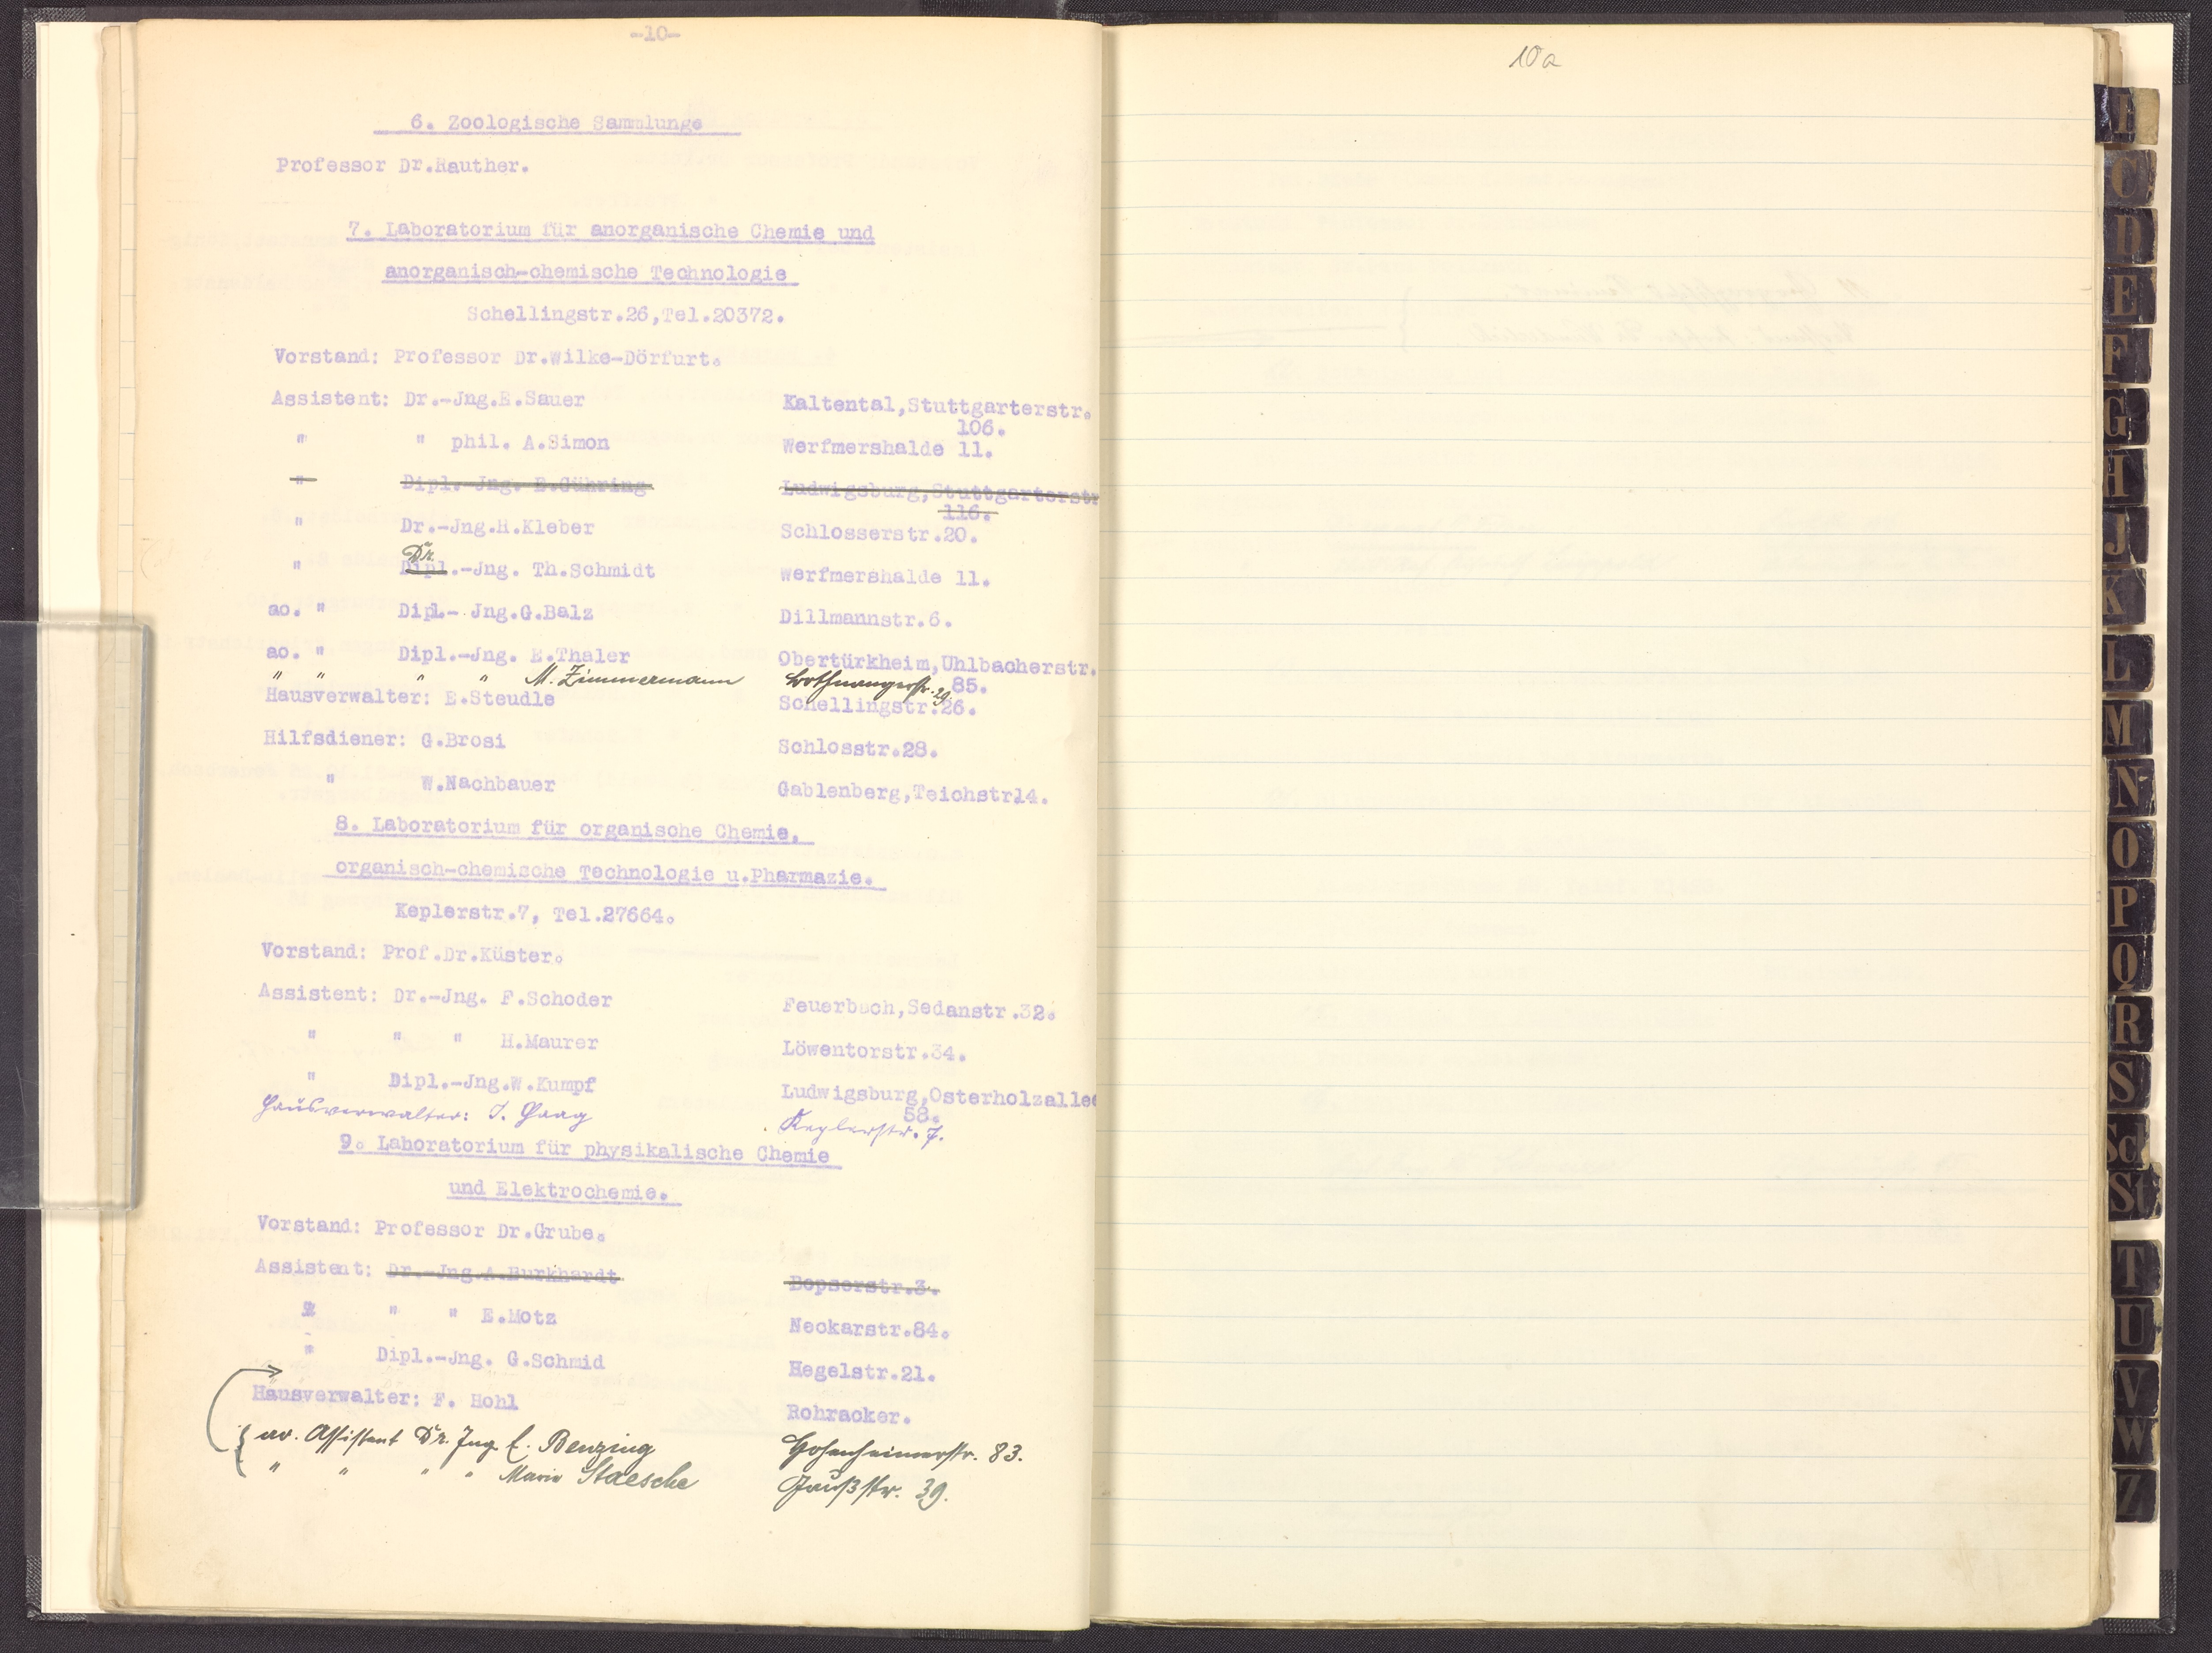 -10-
6. Zoologische Sammlunge
Professor Dr.Rauther.
7. Laboratorium für anorganische Chemie und
anorganisch-chemische Technologie
Schellingstr.26,Tel.20372.
Vorstand: Professor Dr.Wilke-Dörfurt.
Assistent: Dr.-Jng.E.Sauer Kaltental,Stuttgarterstr.
106.
" " phil. A.Simon Werfmershalde 11.
" Dipl.-Jng. E.Gühring Ludwigsburg,Stuttgarterstr
116.
" Dr.-Jng.H.Kleber Schlosserstr.20.
Dr.
" Dipl.-Jng. Th.Schmidt Werfmershalde 11.
ao. " Dipl.- Jng.G.Balz Dillmannstr.6.
ao. " Dipl.-Jng. E.Thaler Obertürkheim,Uhlbacherstr.
85.
" " " " M. Zimmermann Bothnangerstr. 29.
Hausverwalter: E.Steudle Schellingstr.26.
Hilfsdiener: G.Brosi Schlosstr.28.
" W.Nachbauer Gablenberg,Teichstr14.
8. Laboratorium für organische Chemie,
organisch-chemische Technologie u.Pharmazie.
Keplerstr.7, Tel.27664.
Vorstand: Prof.Dr.Küster.
Assistent: Dr.-Jng. F.Schoder Feuerbach,Sedanstr.32.
" " " H.Maurer Löwentorstr.34.
" Dipl.-Jng.W.Kumpf Ludwigsburg,Osterholzallee
58.
Hausverwalter: J. Haag Keplerstr. 7.
9. Laboratorium für physikalische Chemie
und Elektrochemie.
Vorstand: Professor Dr.Grube.
Assistent: Dr.-Jng.A.Burkhardt Bopserstr.3.
" " " E.Motz Neckarstr.84.
" Dipl.-Jng. G.Schmid Hegelstr.21.
Hausverwalter: F. Hohl Rohracker.
ao. Assistent Dr. Ing. E. Benzing Hohenheimerstr. 83.
" " " " Maria Staesche Gaußstr. 39.
10a
C
D
E
F
G
H
J
K
L
M
N
O
P
Q
R
S
Sch
St
T
U
V
W
Z